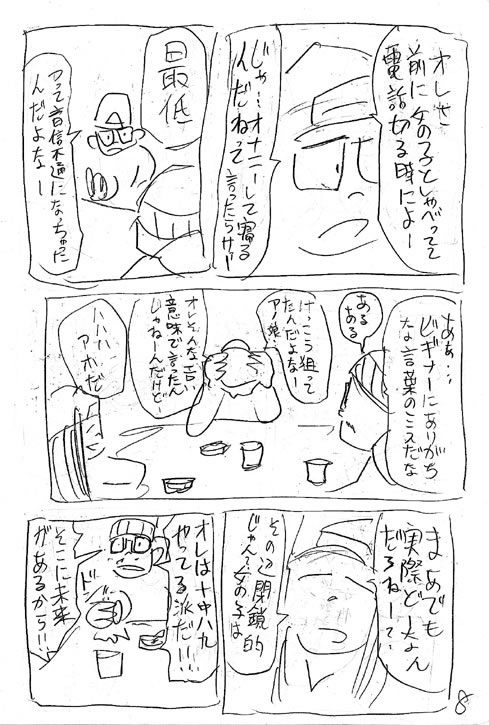 オレせ
前に女の子としゃべってて
電話切る時によー
じゃ…オナニーして寝る
んだねって
言ったらサ…
最低
って音信不通になっちゃった
んだよなー
ああ…
ビギナーにありがち
な言葉のミスだな
あるある
けっこう狙って
たんだよなー
アノ娘…
オレそんな
意味で言ったん
じゃねーんだけど…
ハハハ
アホだ
まあでも
実際どーなん
だろねーって
その辺閉鎖的
じゃん?女の子は
オレは十中八九
やってる派だ!!
そこに未来
があるから!!
ドン
8